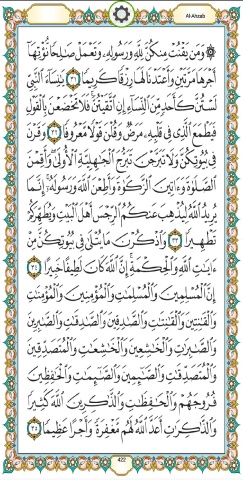 Al-Ahzab
۞ وَمَن يَقْنُتْ مِنكُنَّ لِلَّهِ وَرَسُولِهِۦ وَتَعْمَلْ صَٰلِحًا نُّؤْتِهَآ
أَجْرَهَا مَرَّتَيْنِ وَأَعْتَدْنَا لَهَا رِزْقًا كَرِيمًا ٣١ يَٰنِسَآءَ ٱلنَّبِىِّ
لَسْتُنَّ كَأَحَدٍ مِّنَ ٱلنِّسَآءِ إِنِ ٱتَّقَيْتُنَّ فَلَا تَخْضَعْنَ بِٱلْقَوْلِ
فَيَطْمَعَ ٱلَّذِى فِى قَلْبِهِۦ مَرَضٌ وَقُلْنَ قَوْلًا مَّعْرُوفًا ٣٢ وَقَرْنَ
فِى بُيُوتِكُنَّ وَلَا تَبَرَّجْنَ تَبَرُّجَ ٱلْجَٰهِلِيَّةِ ٱلْأُولَىٰ وَأَقِمْنَ
ٱلصَّلَوٰةَ وَءَاتِينَ ٱلزَّكَوٰةَ وَأَطِعْنَ ٱللَّهَ وَرَسُولَهُۥٓ إِنَّمَا
يُرِيدُ ٱللَّهُ لِيُذْهِبَ عَنكُمُ ٱلرِّجْسَ أَهْلَ ٱلْبَيْتِ وَيُطَهِّرَكُمْ
تَطْهِيرًا ٣٣ وَٱذْكُرْنَ مَا يُتْلَىٰ فِى بُيُوتِكُنَّ مِنْ
ءَايَٰتِ ٱللَّهِ وَٱلْحِكْمَةِ إِنَّ ٱللَّهَ كَانَ لَطِيفًا خَبِيرًا ٣٤
إِنَّ ٱلْمُسْلِمِينَ وَٱلْمُسْلِمَٰتِ وَٱلْمُؤْمِنِينَ وَٱلْمُؤْمِنَٰتِ
وَٱلْقَٰنِتِينَ وَٱلْقَٰنِتَٰتِ وَٱلصَّٰدِقِينَ وَٱلصَّٰدِقَٰتِ وَٱلصَّٰبِرِينَ
وَٱلصَّٰبِرَٰتِ وَٱلْخَٰشِعِينَ وَٱلْخَٰشِعَٰتِ وَٱلْمُتَصَدِّقِينَ
وَٱلْمُتَصَدِّقَٰتِ وَٱلصَّٰٓئِمِينَ وَٱلصَّٰٓئِمَٰتِ وَٱلْحَٰفِظِينَ
فُرُوجَهُمْ وَٱلْحَٰفِظَٰتِ وَٱلذَّٰكِرِينَ ٱللَّهَ كَثِيرًا
وَٱلذَّٰكِرَٰتِ أَعَدَّ ٱللَّهُ لَهُم مَّغْفِرَةً وَأَجْرًا عَظِيمًا ٣٥
422